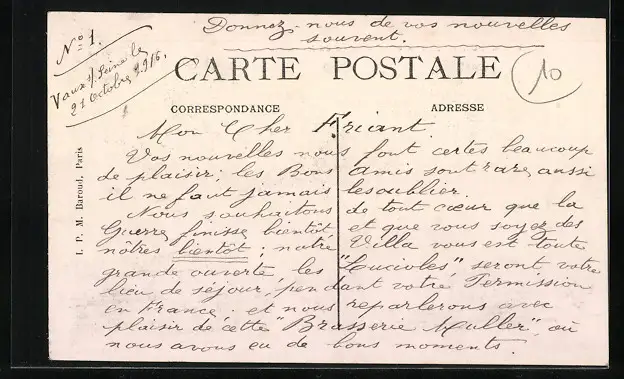 Donnez-nous de vos nouvelles
souvent.
No 1.
Vaux s/ Seine le
21 Octobre 1916.
10
CARTE POSTALE
CORRESPONDANCE
ADRESSE
Mon Cher Friant.
Vos nouvelles nous font certes beaucoup
de plaisir; les Bons amis sont rares aussi
il ne faut jamais les oublier.
Nous souhaitons de tout cœur que la
Guerre finisse bientôt et que vous soyez des
nôtres bientôt; notre Villa vous est toute
grande ouverte, les "Lucioles", seront votre
lieu de séjour, pendant votre Permission
en France; et nous reparlerons avec
plaisir de cette "Brasserie Muller" où
nous avons eu de bons moments.
I. P. M. Baroud, Paris